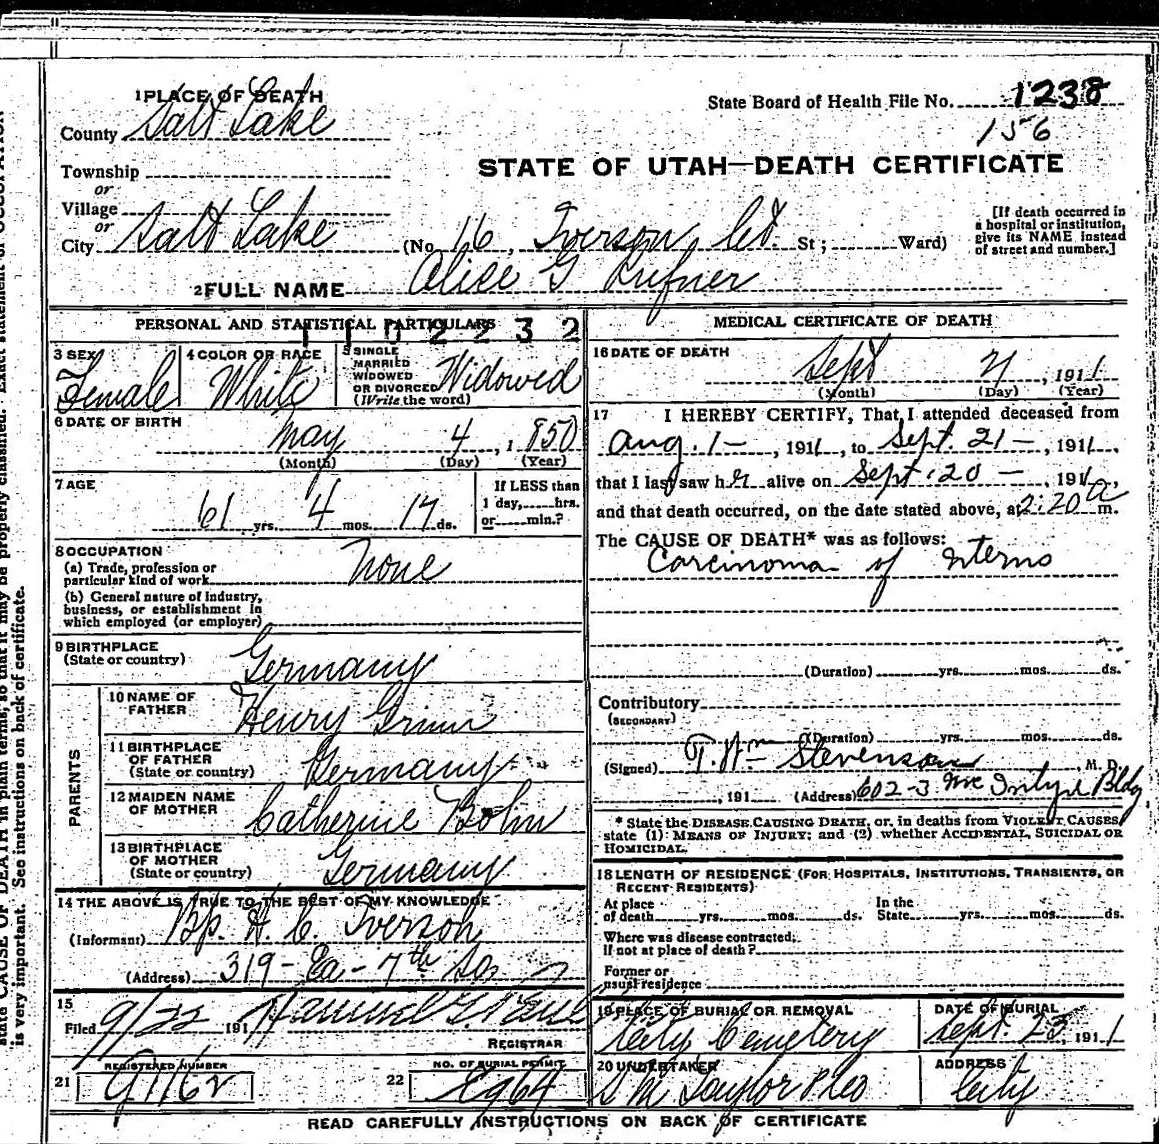 1 PLACE OF DEATH
County Salt Lake
State Board of Health File No. 1238
156
Township
or
Village
or
City Salt Lake
STATE OF UTAH—DEATH CERTIFICATE
(No. 16, Iverson, Ct. St; Ward)
[If death occurred in
a hospital or institution,
give its NAME instead
of street and number.]
2 FULL NAME Alice G Rufner
PERSONAL AND STATISTICAL PARTICULARS
1102232
3 SEX
Female
4 COLOR OR RACE
White
5 SINGLE
MARRIED
WIDOWED
OR DIVORCED
(Write the word)
Widowed
6 DATE OF BIRTH
May 4, 1850
(Month) (Day) (Year)
7 AGE
61 yrs. 4 mos. 17 ds.
If LESS than
1 day, hrs.
or min.?
8 OCCUPATION
(a) Trade, profession or
particular kind of work
None
(b) General nature of industry,
business, or establishment in
which employed (or employer)
9 BIRTHPLACE
(State or country)
Germany
PARENTS
10 NAME OF
FATHER
Henry Grimm
11 BIRTHPLACE
OF FATHER
(State or country)
Germany
12 MAIDEN NAME
OF MOTHER
Catherine Bohn
13 BIRTHPLACE
OF MOTHER
(State or country)
Germany
14 THE ABOVE IS TRUE TO THE BEST OF MY KNOWLEDGE
(Informant) Bp. H. C. Iverson
(Address) 319 - Ea - 7th So.
15
Filed 9/22 1911 Samuel G.
REGISTRAR
REGISTERED NUMBER
21
NO. OF BURIAL PERMIT
22
MEDICAL CERTIFICATE OF DEATH
16 DATE OF DEATH
Sept 21, 1911
(Month) (Day) (Year)
17 I HEREBY CERTIFY, That I attended deceased from
Aug. 1 -, 1911, to Sept. 21 -, 1911,
that I last saw her alive on Sept. 20 -, 1911,
and that death occurred, on the date stated above, at 2:20 a m.
The CAUSE OF DEATH* was as follows:
Carcinoma of
(Duration) yrs. mos. ds.
Contributory
(SECONDARY)
(Duration) yrs. mos. ds.
(Signed) T. Wm Stevenson, M. D.
, 191 (Address) 602-3 McIntyre Bldg
* State the DISEASE CAUSING DEATH, or, in deaths from VIOLENT CAUSES,
state (1) MEANS OF INJURY; and (2) whether ACCIDENTAL, SUICIDAL OR
HOMICIDAL.
18 LENGTH OF RESIDENCE (FOR HOSPITALS, INSTITUTIONS, TRANSIENTS, OR
RECENT RESIDENTS)
At place
of death yrs. mos. ds.
In the
State yrs. mos. ds.
Where was disease contracted,
if not at place of death?
Former or
usual residence
19 PLACE OF BURIAL OR REMOVAL
City Cemetery
DATE OF BURIAL
Sept. 23, 1911
20 UNDERTAKER
S M Taylor & Co
ADDRESS
City
READ CAREFULLY INSTRUCTIONS ON BACK OF CERTIFICATE
state CAUSE OF DEATH in plain terms, so that it may be properly classified. Exact statement of OCCUPATION
is very important. See instructions on back of certificate.